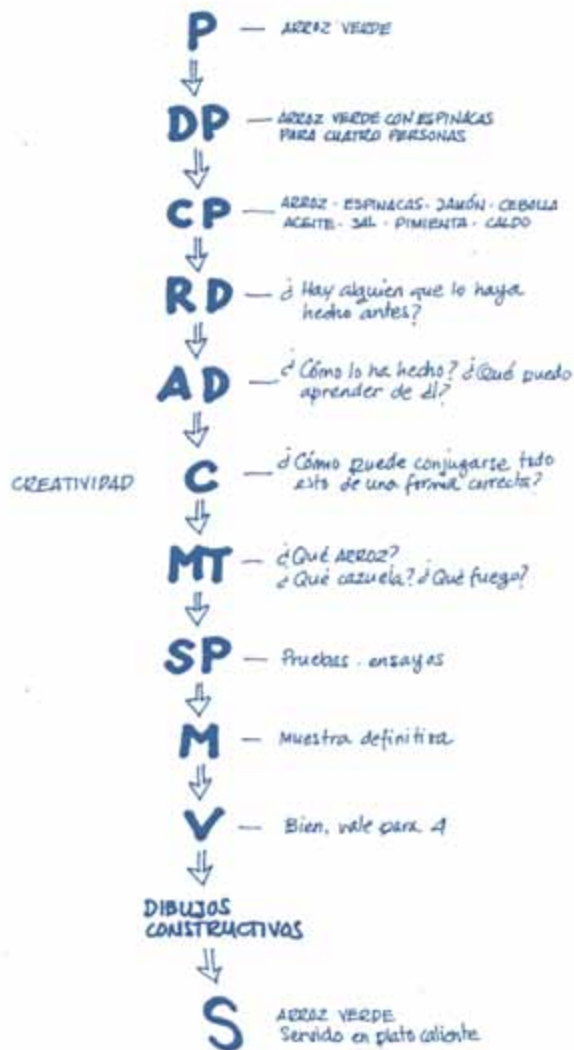 P — ARROZ VERDE
DP — ARROZ VERDE CON ESPINACAS
PARA CUATRO PERSONAS
CP — ARROZ - ESPINACAS - JAMÓN - CEBOLLA
ACEITE - SAL - PIMIENTA - CALDO
RD — ¿Hay alguien que lo haya
hecho antes?
AD — ¿Cómo lo ha hecho? ¿Qué puedo
aprender de él?
CREATIVIDAD C — ¿Cómo puede conjugarse todo
esto de una forma correcta?
MT — ¿Qué ARROZ?
¿Qué cazuela? ¿Qué fuego?
SP — Pruebas. ensayos
M — Muestra definitiva
V — Bien, vale para 4
DIBUJOS
CONSTRUCTIVOS
S ARROZ VERDE
Servido en plato caliente